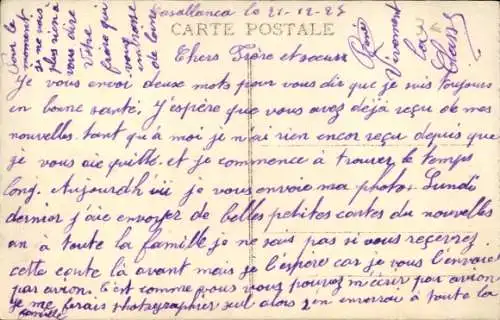 Casablanca le 21-12-25
CARTE POSTALE
Chers Frère et soeurs
Je vous envoi deux mots pour vous dir que je suis toujours
en bone santé. J'espère que vous avez déjà reçu de mes
nouvelles. tant qu à moi je n ai rien encor reçu depuis que
je vous aie quitté. et je commence à trouver le temps
long. Aujourdh'ui je vous envoie ma photo. Lundi
dernier j'aie envoyer de belles petites cartes du nouvelles
an à toute la famille je ne sais pas si vous reçevrez
cette carte là avant mais je l'espère car je vous l'envoie
par avion. c'est comme vous vous pouvez m'écrir par avion.
je me ferais photographier seul alors j'en enverrai à toute la
famille
Pour le
moment
si ne vois
plus rien à
vous dire
Votre
frère qui
vous
embrasse
de loin
René
Vivement
la
Classe